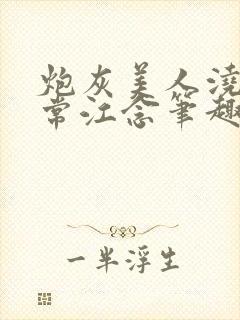 炮灰美人浇
常江念笔趣
一半浮生